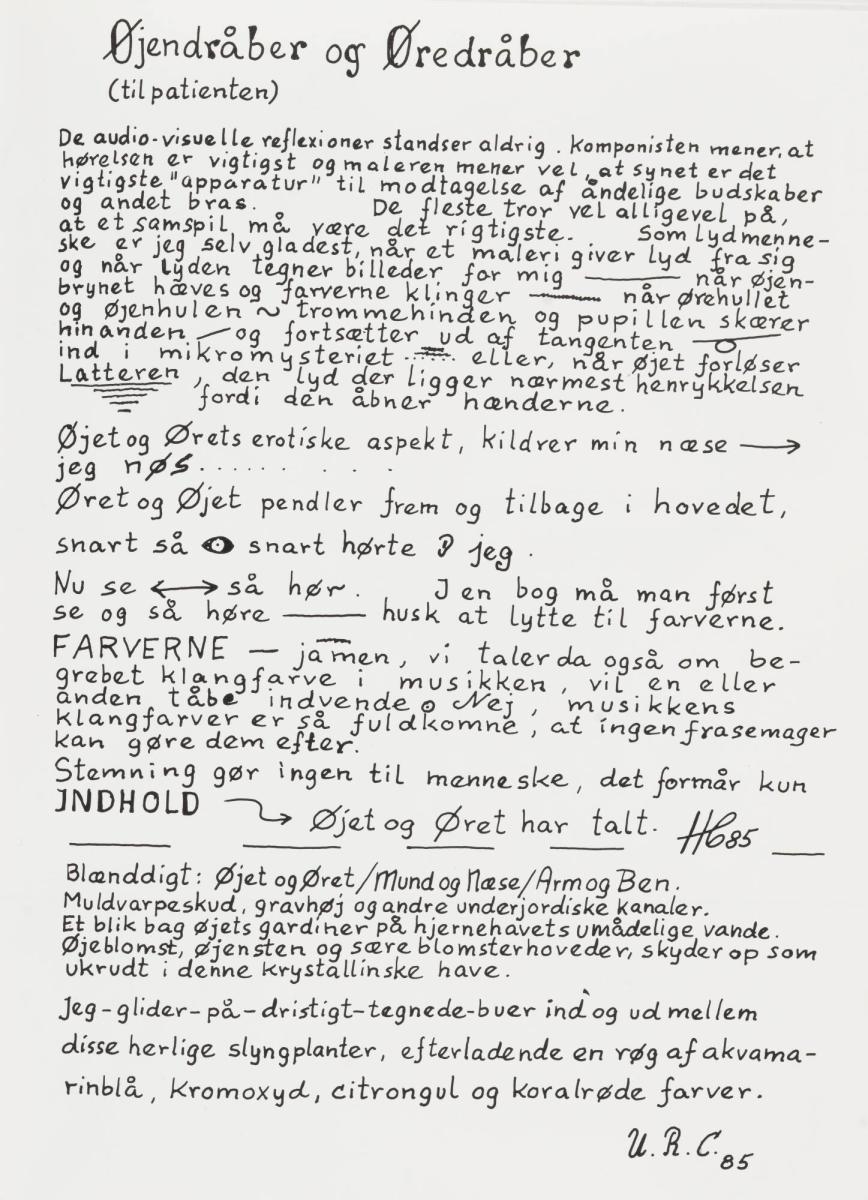 Øjendråber og Øredråber
(til patienten)
De audio-visuelle reflexioner standser aldrig. Komponisten mener, at
hørelsen er vigtigst og maleren mener vel, at synet er det
vigtigste "apparatur" til modtagelse af åndelige budskaber
og andet bras. De fleste tror vel alligevel på,
at et samspil må være det rigtigste. Som lydmenne-
ske er jeg selv gladest, når et maleri giver lyd fra sig
og når lyden tegner billeder for mig — når øjen-
brynet hæves og farverne klinger — når ørehullet
og øjenhulen ~ trommehinden og pupillen skærer
hinanden — og fortsætter ud af tangenten —
ind i mikromysteriet ..... eller, når øjet forløser
Latteren, den lyd der ligger nærmest henrykkelsen
fordi den åbner hænderne.
Øjet og Ørets erotiske aspekt, kildrer min næse →
jeg nøs..... . . .
Øret og Øjet pendler frem og tilbage i hovedet,
snart så snart hørte jeg.
Nu se ↔ så hør. I en bog må man først
se og så høre — husk at lytte til farverne.
FARVERNE — jamen, vi taler da også om be-
grebet klangfarve i musikken, vil en eller
anden tåbe indvende. Nej, musikkens
klangfarver er så fuldkomne, at ingen frasemager
kan gøre dem efter.
Stemning gør ingen til menneske, det formår kun
INDHOLD → Øjet og Øret har talt. HC85
Blænddigt: Øjet og Øret/Mund og Næse/Arm og Ben.
Muldvarpeskud, gravhøj og andre underjordiske kanaler.
Et blik bag øjets gardiner på hjernehavets umådelige vande.
Øjeblomst, øjensten og sære blomsterhoveder, skyder op som
ukrudt i denne krystallinske have.
Jeg-glider-på-dristigt-tegnede-buer ind og ud mellem
disse herlige slyngplanter, efterladende en røg af akvama-
rinblå, kromoxyd, citrongul og koralrøde farver.
U.R.C. 85